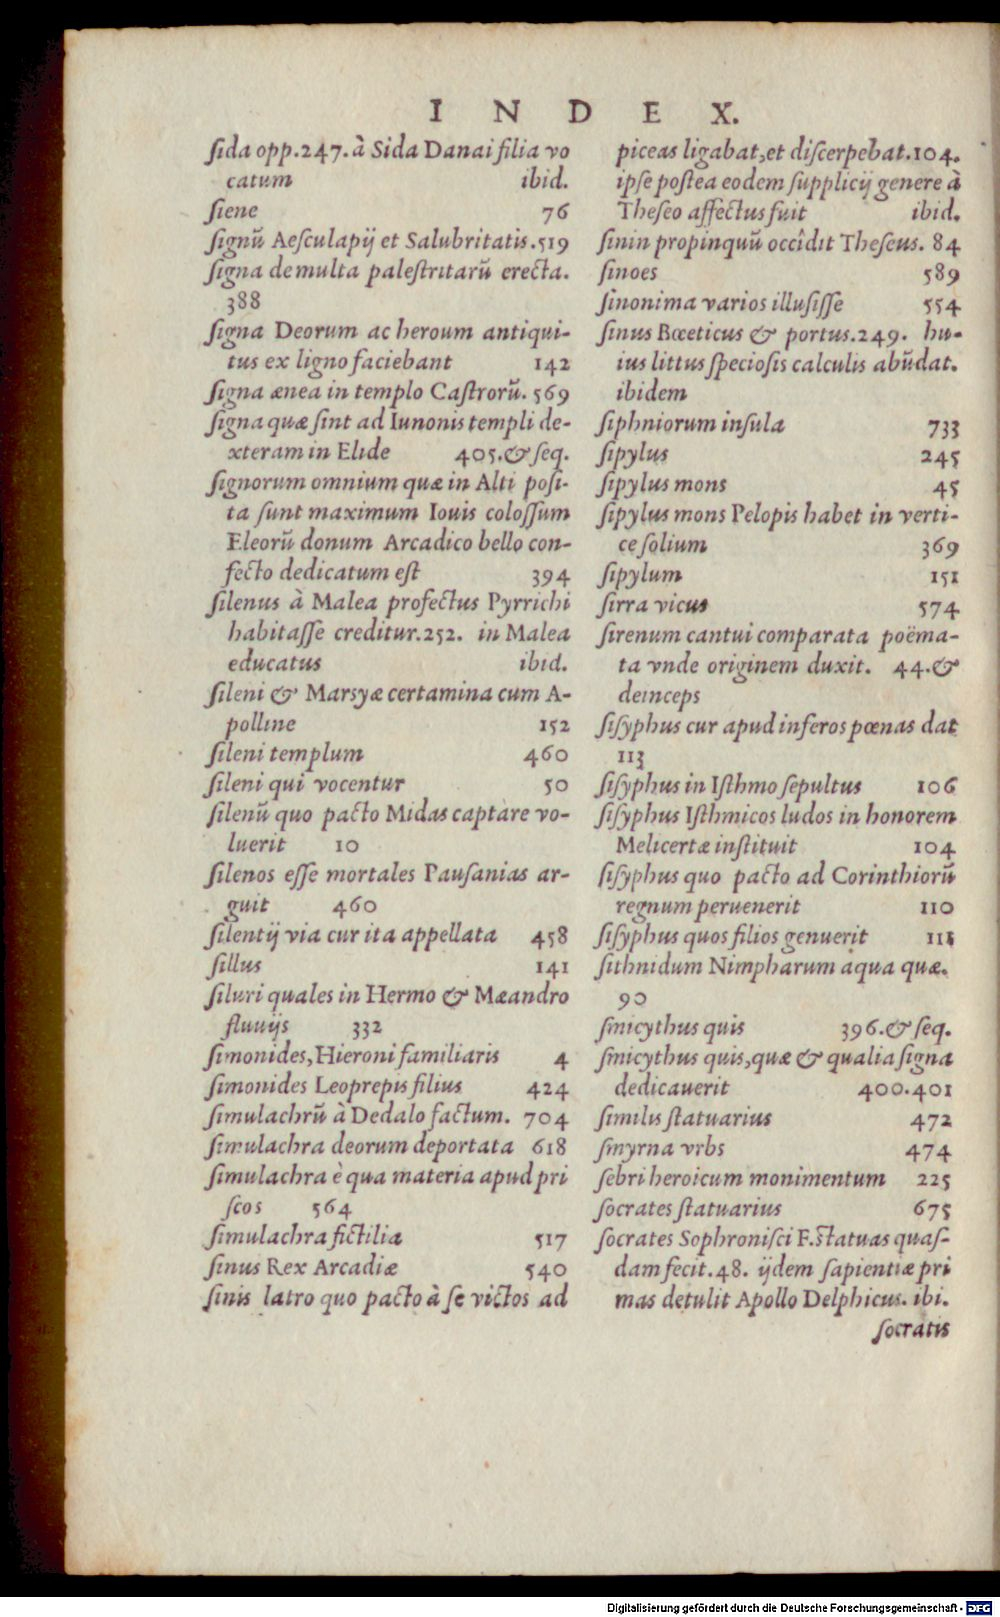 INDEX.
ſida opp.247. à Sida Danai filia vo
catum ibid.
ſiene 76
ſignũ Aeſculapij et Salubritatis.519
ſigna de multa paleſtritarũ erecta.
388
ſigna Deorum ac heroum antiqui-
tus ex ligno faciebant 142
ſigna ænea in templo Caſtrorũ. 569
ſigna quæ ſint ad Iunonis templi de-
xteram in Elide 405.& ſeq.
ſignorum omnium quæ in Alti poſi-
ta ſunt maximum Iouis coloſſum
Eleorũ donum Arcadico bello con-
fecto dedicatum eſt 394
ſilenus à Malea profectus Pyrrichi
habitaſſe creditur.252. in Malea
educatus ibid.
ſileni & Marsyæ certamina cum A-
polline 152
ſileni templum 460
ſileni qui vocentur 50
ſilenũ quo pacto Midas captare vo-
luerit 10
ſilenos eſſe mortales Pauſanias ar-
guit 460
ſilentij via cur ita appellata 458
ſillus 141
ſiluri quales in Hermo & Mæandro
fluuijs 332
ſimonides, Hieroni familiaris 4
ſimonides Leoprepis filius 424
ſimulachrũ à Dedalo factum. 704
ſimulachra deorum deportata 618
ſimulachra è qua materia apud pri
ſcos 564
ſimulachra fictilia 517
ſinus Rex Arcadiæ 540
ſinis latro quo pacto à ſe victos ad
piceas ligabat, et diſcerpebat.104.
ipſe poſtea eodem ſupplicij genere à
Theſeo affectus fuit ibid.
ſinin propinquũ occîdit Theſeus. 84
ſinoes 589
ſinonima varios illuſiſſe 554
ſinus Bœeticus & portus.249. hu-
ius littus ſpecioſis calculis abũdat.
ibidem
ſiphniorum inſula 733
ſipylus 245
ſipylus mons 45
ſipylus mons Pelopis habet in verti-
ce ſolium 369
ſipylum 151
ſirra vicus 574
ſirenum cantui comparata poëma-
ta vnde originem duxit. 44.&
deinceps
ſiſyphus cur apud inferos pœnas dat
113
ſiſyphus in Iſthmo ſepultus 106
ſiſyphus Iſthmicos ludos in honorem
Melicertæ inſtituit 104
ſiſyphus quo pacto ad Corinthiorũ
regnum peruenerit 110
ſiſyphus quos filios genuerit 111
ſithnidum Nimpharum aqua quæ.
90
ſmicythus quis 396.& ſeq.
ſmicythus quis, quæ & qualia ſigna
dedicauerit 400.401
ſimilis ſtatuarius 472
ſmyrna vrbs 474
ſebri heroicum monimentum 225
ſocrates ſtatuarius 675
ſocrates Sophroniſci F. ſtatuas quaſ-
dam fecit.48. ijdem ſapientiæ pri
mas detulit Apollo Delphicus. ibi.
ſocratis
Digitalisierung gefördert durch die Deutsche Forschungsgemeinschaft - DFG